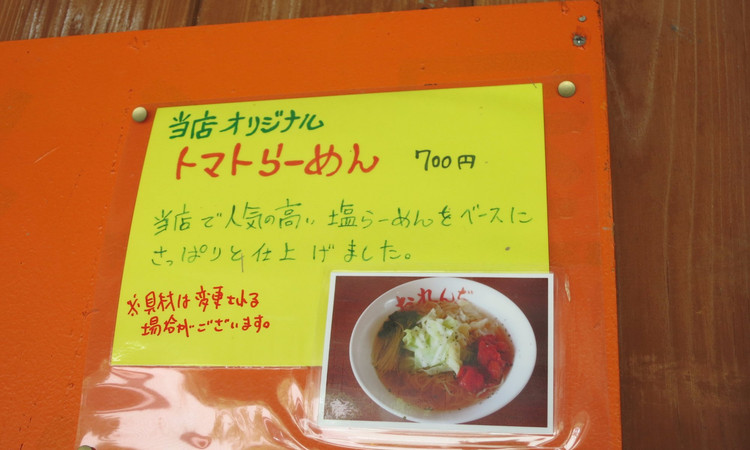 当店オリジナル
トマトらーめん 700円
当店で人気の高い塩らーめんをベースに
さっぱりと仕上げました。
※具材は変更される
場合がございます。